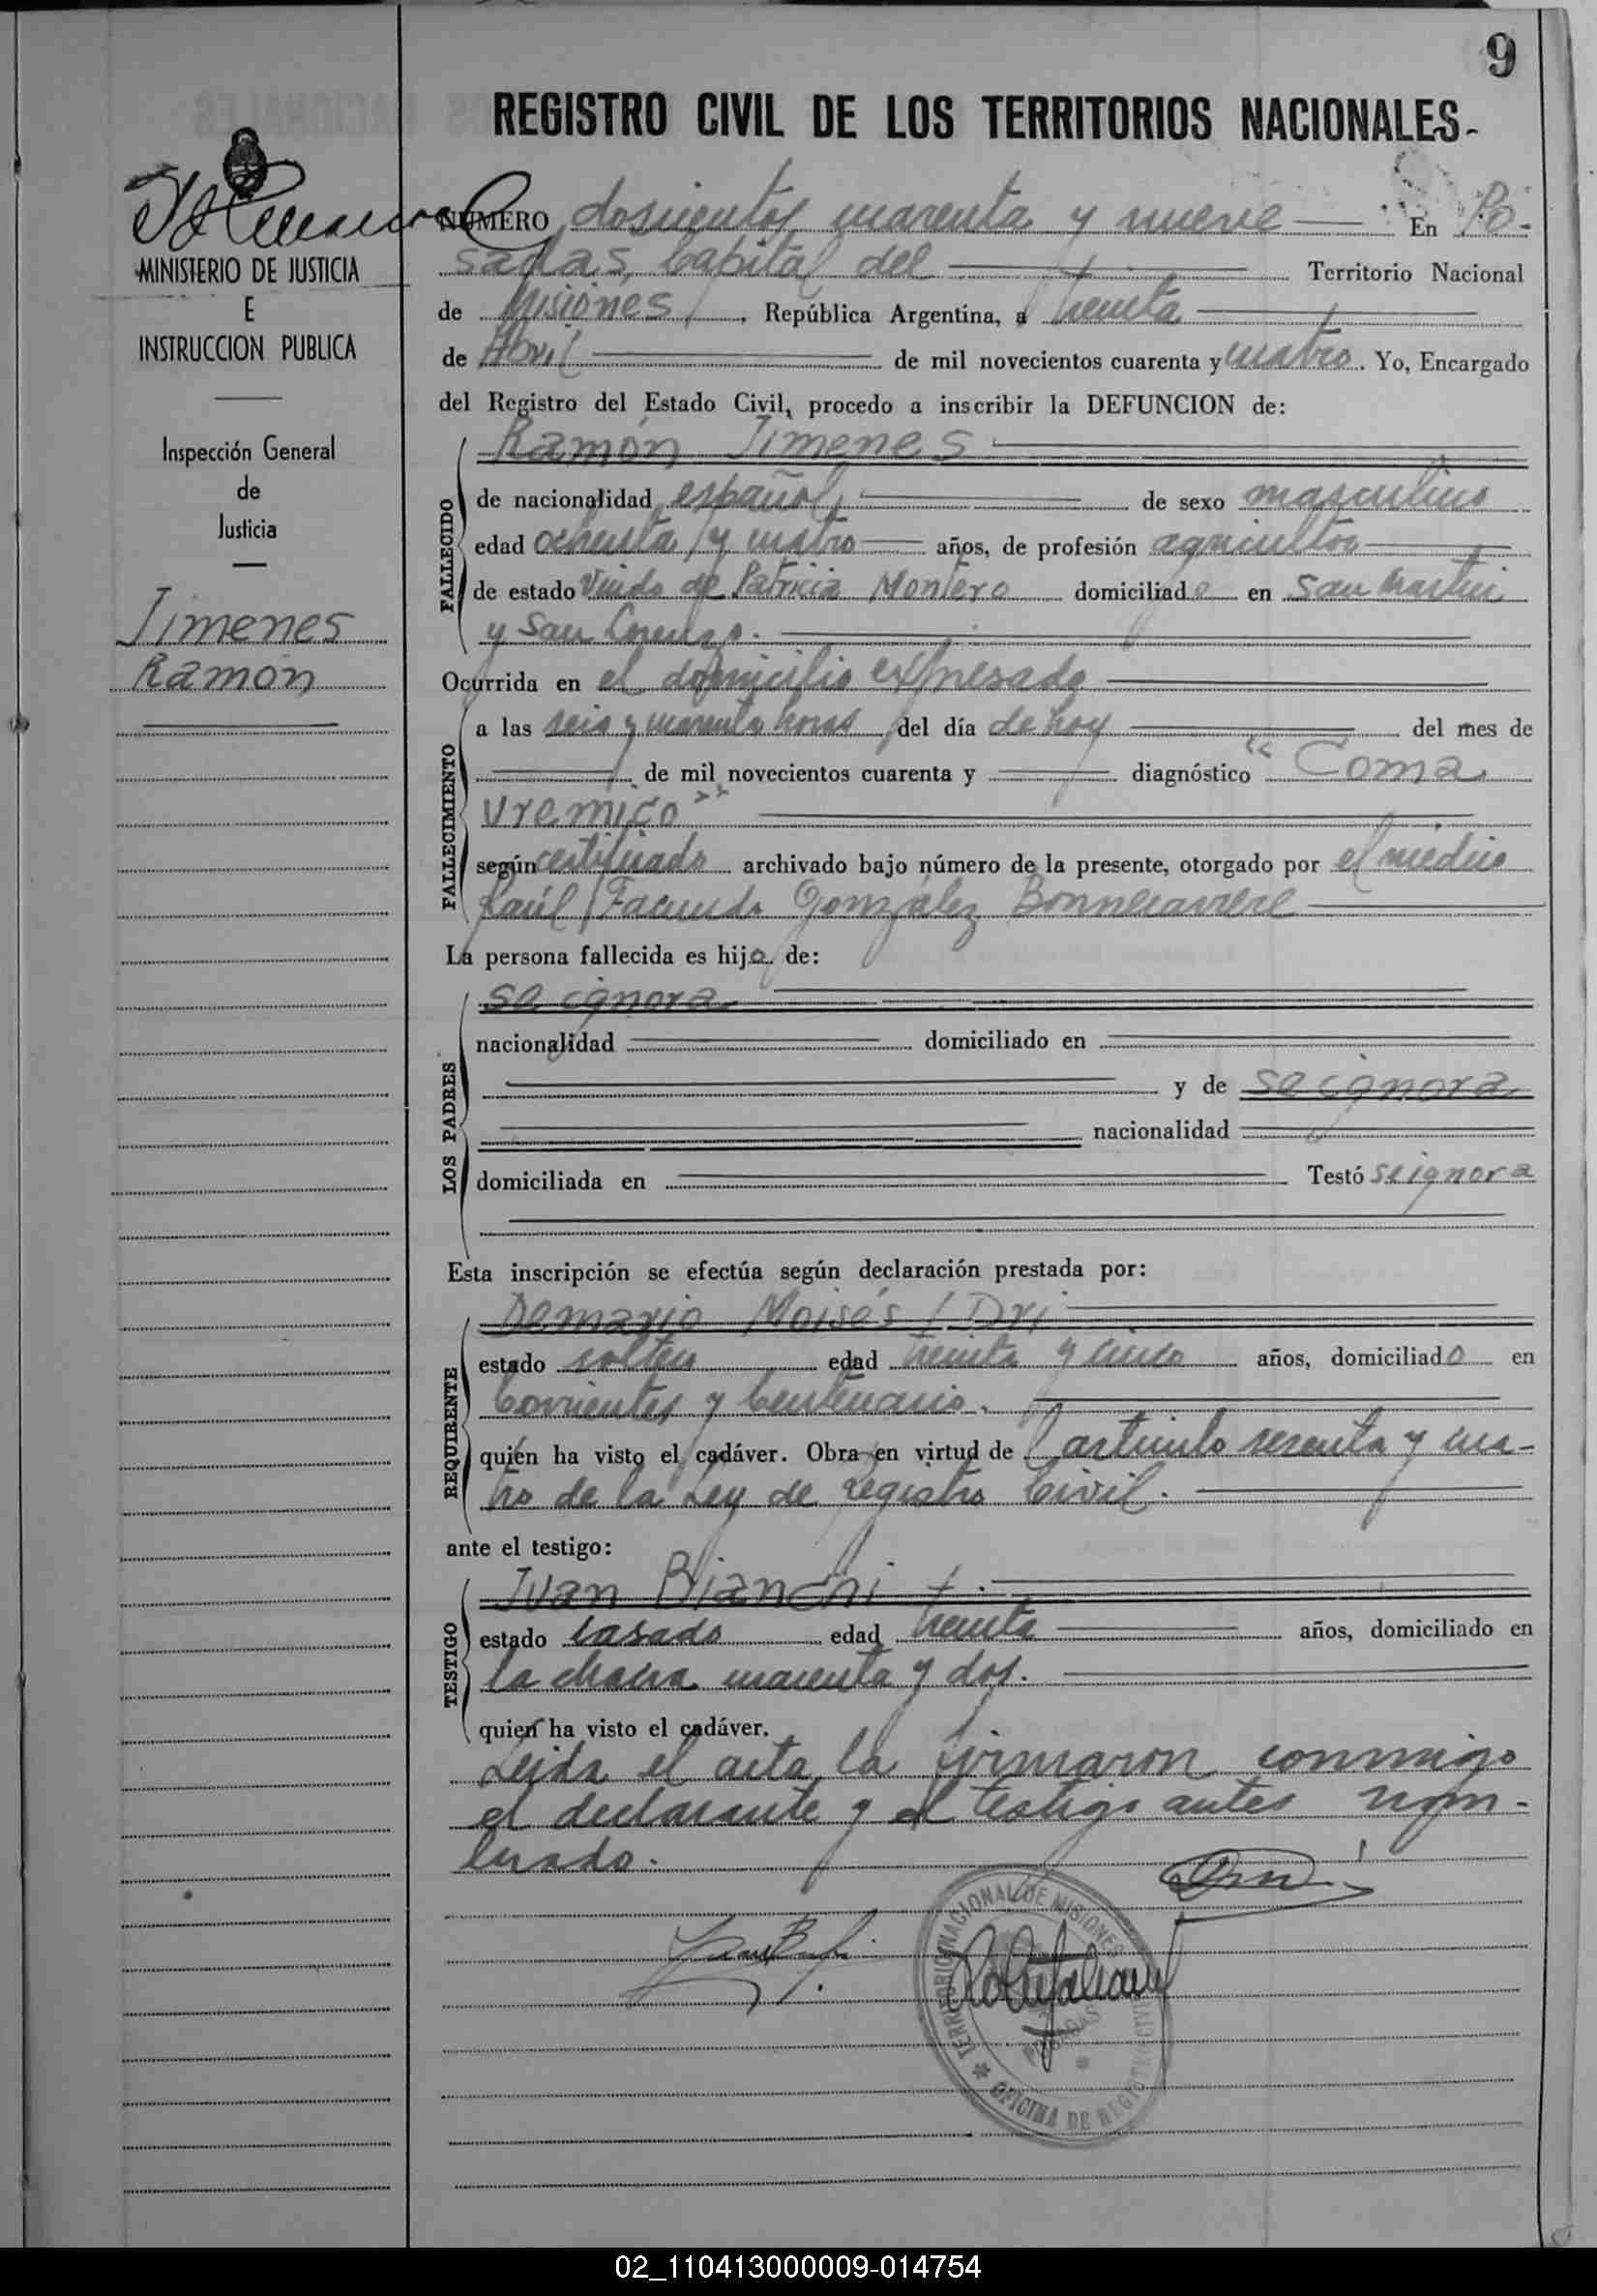 9
REGISTRO CIVIL DE LOS TERRITORIOS NACIONALES-
NUMERO doscientos cuarenta y nueve En Po-
sadas, Capital del Territorio Nacional
de Misiones, República Argentina, a treinta
de Abril de mil novecientos cuarenta y cuatro. Yo, Encargado
del Registro del Estado Civil, procedo a inscribir la DEFUNCION de:
MINISTERIO DE JUSTICIA
E
INSTRUCCION PUBLICA
Inspección General
de
Justicia
Jimenes
Ramón
FALLECIDO
Ramón Jimenes
de nacionalidad español, de sexo masculino
edad ochenta y cuatro años, de profesión agricultor
de estado viudo de Patricia Montero domiciliado en San Martin
y San Lorenzo.
Ocurrida en el domicilio expresado
FALLECIMIENTO
a las seis y cuarenta horas del día de hoy del mes de
de mil novecientos cuarenta y diagnóstico "Coma
uremico"
según certificado archivado bajo número de la presente, otorgado por el médico
Raúl Facundo González Bonnecarrere
La persona fallecida es hijo de:
LOS PADRES
se ignora
nacionalidad domiciliado en
y de se ignora
nacionalidad
domiciliada en Testó se ignora
Esta inscripción se efectúa según declaración prestada por:
REQUIRENTE
Demario Moisés Dri
estado soltero edad treinta y cinco años, domiciliado en
Corrientes y Centenario.
quien ha visto el cadáver. Obra en virtud de artículo sesenta y cua-
tro de la Ley de Registro Civil.
ante el testigo:
TESTIGO
Juan Bianchi
estado casado edad treinta años, domiciliado en
la chacra cuarenta y dos.
quien ha visto el cadáver.
Leida el acta, la firmaron conmigo
el declarante y el testigo antes nom-
brado.
TERRITORIO NACIONAL DE MISIONES
POSADAS
OFICINA DE REGISTRO CIVIL
02_110413000009-014754